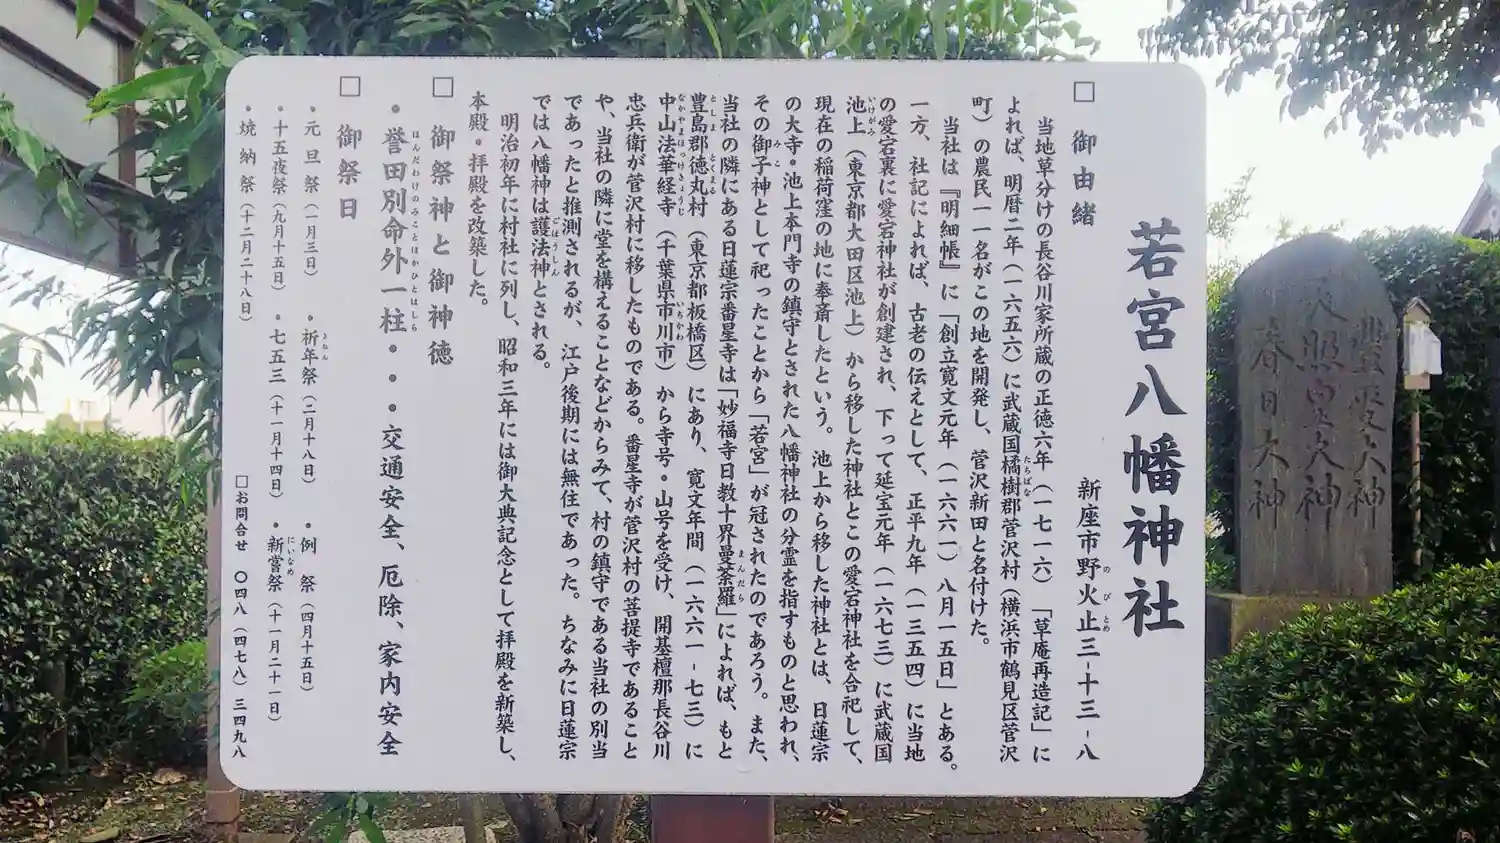 若宮八幡神社
新座市野火止三－十三－八
□ 御由緒
当地草分けの長谷川家所蔵の正徳六年（一七一六）「草庵再造記」に
よれば、明暦二年（一六五六）に武蔵国橘樹郡菅沢村（横浜市鶴見区菅沢
町）の農民一一名がこの地を開発し、菅沢新田と名付けた。
当社は『明細帳』に「創立寛文元年（一六六一）八月一五日」とある。
一方、社記によれば、古老の伝えとして、正平九年（一三五四）に当地
の愛宕裏に愛宕神社が創建され、下って延宝元年（一六七三）に武蔵国
池上（東京都大田区池上）から移した神社とこの愛宕神社を合祀して、
現在の稲荷窪の地に奉斎したという。池上から移した神社とは、日蓮宗
の大寺・池上本門寺の鎮守とされた八幡神社の分霊を指すものと思われ、
その御子神として祀ったことから「若宮」が冠されたのであろう。また、
当社の隣にある日蓮宗番星寺は「妙福寺日教十界曼荼羅」によれば、もと
豊島郡徳丸村（東京都板橋区）にあり、寛文年間（一六六一－七三）に
中山法華経寺（千葉県市川市）から寺号・山号を受け、開基檀那長谷川
忠兵衛が菅沢村に移したものである。番星寺が菅沢村の菩提寺であること
や、当社の隣に堂を構えることなどからみて、村の鎮守である当社の別当
であったと推測されるが、江戸後期には無住であった。ちなみに日蓮宗
では八幡神は護法神とされる。
明治初年に村社に列し、昭和三年には御大典記念として拝殿を新築し、
本殿・拝殿を改築した。
□ 御祭神と御神徳
・誉田別命外一柱・・・交通安全、厄除、家内安全
□ 御祭日
・元旦祭（一月三日）　・祈年祭（二月十八日）　・例　祭（四月十五日）
・十五夜祭（九月十五日）　・七五三（十一月十四日）　・新嘗祭（十一月二十一日）
・焼納祭（十二月二十八日）
□お問合せ　〇四八（四七八）三四九八
豊受大神
天照皇大神
春日大神